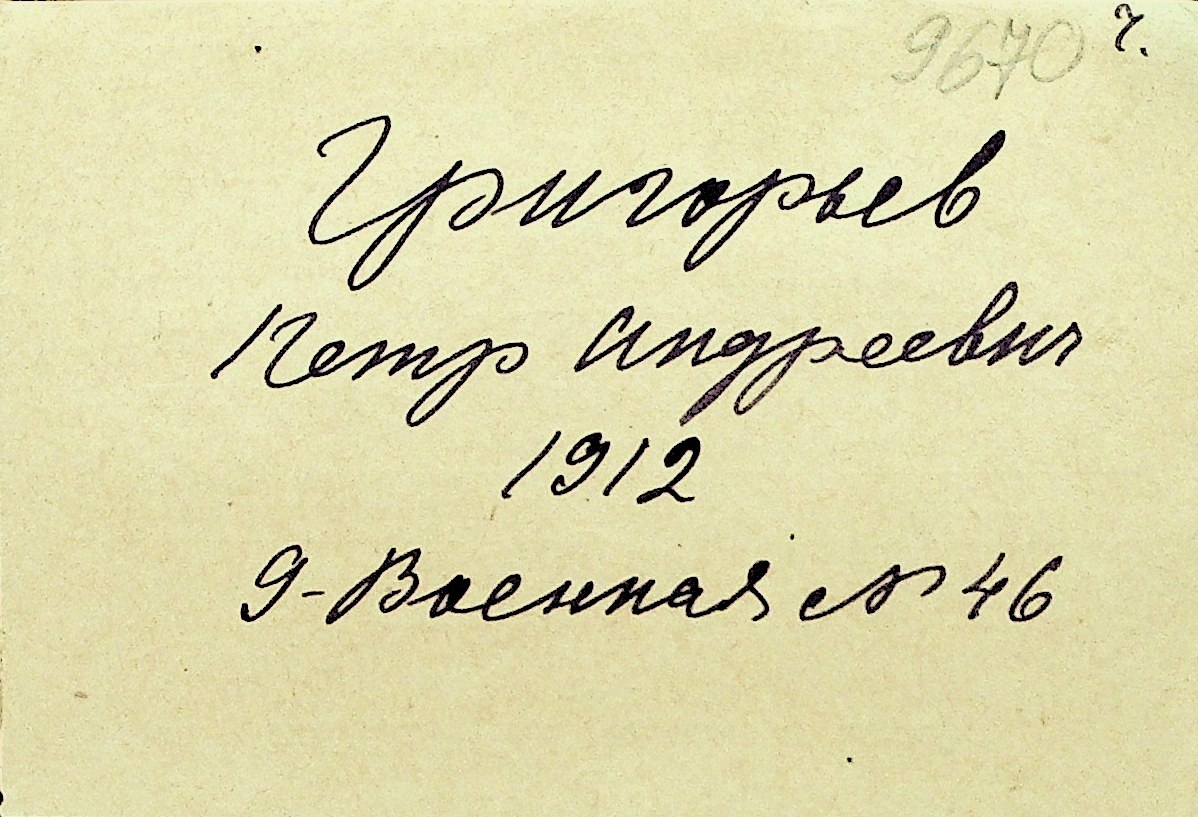 9670 г.
Григорьев
Петр Андреевич
1912
9-Военная № 46